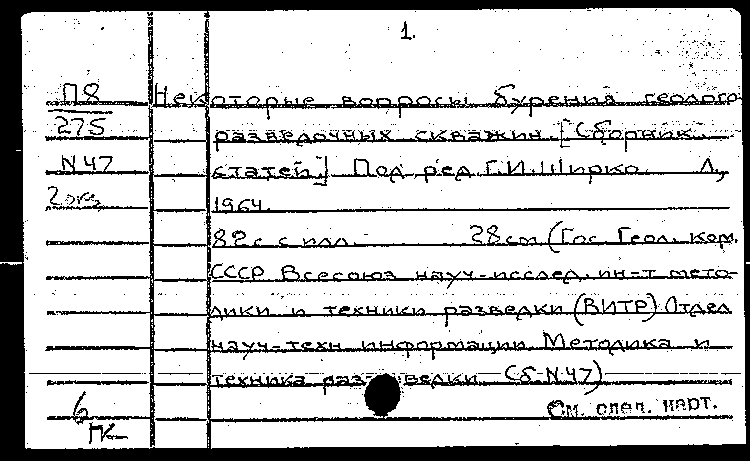 1.
П8 Некоторые вопросы бурения геолого-
275 разведочных скважин. [Сборник
N 47 статей.] Под ред. Г.И. Ширко. Л.,
2 экз 1964.
82 с. с илл. 28 см (Гос. Геол. Ком.
СССР Всесоюз науч-исслед. ин-т мето-
дики и техники разведки (ВИТР) Отдел
науч-техн информации Методика и
техника разведки (Сб. N 47)
6 См. след. карт.
ПК